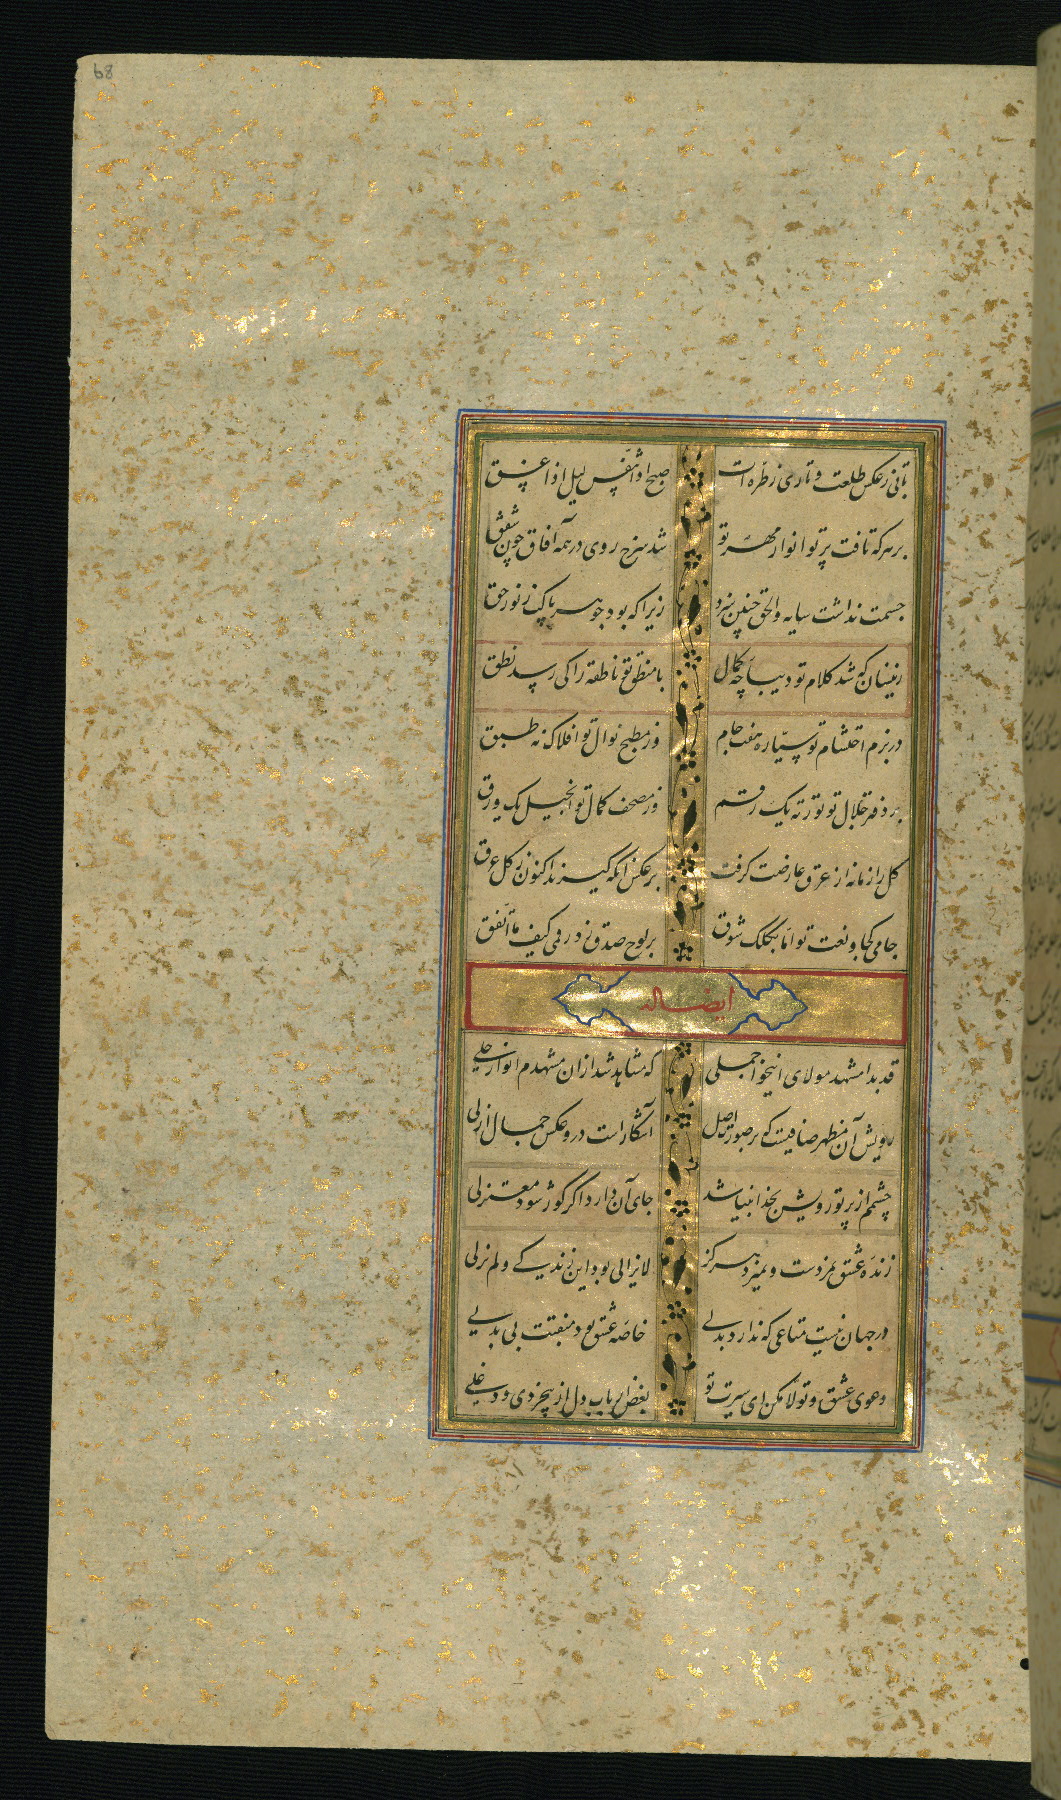 68
تابی ز عکس طلعت و تاری ز طره ات صبح اذا تنفس لیل اذا غسق
بر هر که تافت پرتو انوار مهر تو شد سرخ روی در همه آفاق چون شفق
جسمت نداشت سایه والحق چنین سزد زیرا که بود جوهر پاکت ز نور حق
زینسان که شد کلام تو دیباچه کمال با منطق تو ناطقه را کی رسد نطق
در بزم احتشام تو سیاره هفت جام وز مطبخ نوال تو افلاک نه طبق
بر دفتر جلال تو توریة یک رقم وز مصحف کمال تو انجیل یک ورق
کل را زمانه از عرق عارضت گرفت بر عکس آنکه گیرند اکنون ز کل عرق
جامی کجا و نعت تو اما بکلک شوق بر لوح صدق زد رقمی کیف ما اتفق
ایضا له
قد بدا مشهد مولای انیخوا جملی که مشاهد شد ازان مشهدم انوار جلی
رویش آن مظهر صافیست که بر صورت اصل آشکارست درو عکس جمال ازلی
چشمم از پرتو رویش بخدا بینا شد جای آن دارد اگر کور شود معتزلی
زنده عشق نمردست و نمیرد هرگز لایزالی بود این زندیکی و لم یزلی
در جهان نیست متاعی که ندارد بدلی خاصه عشق بود منقبت بی بدلی
دعوی عشق و تولا مکن ای سیرت تو بغض ارباب دل از بیخردی و دغلی